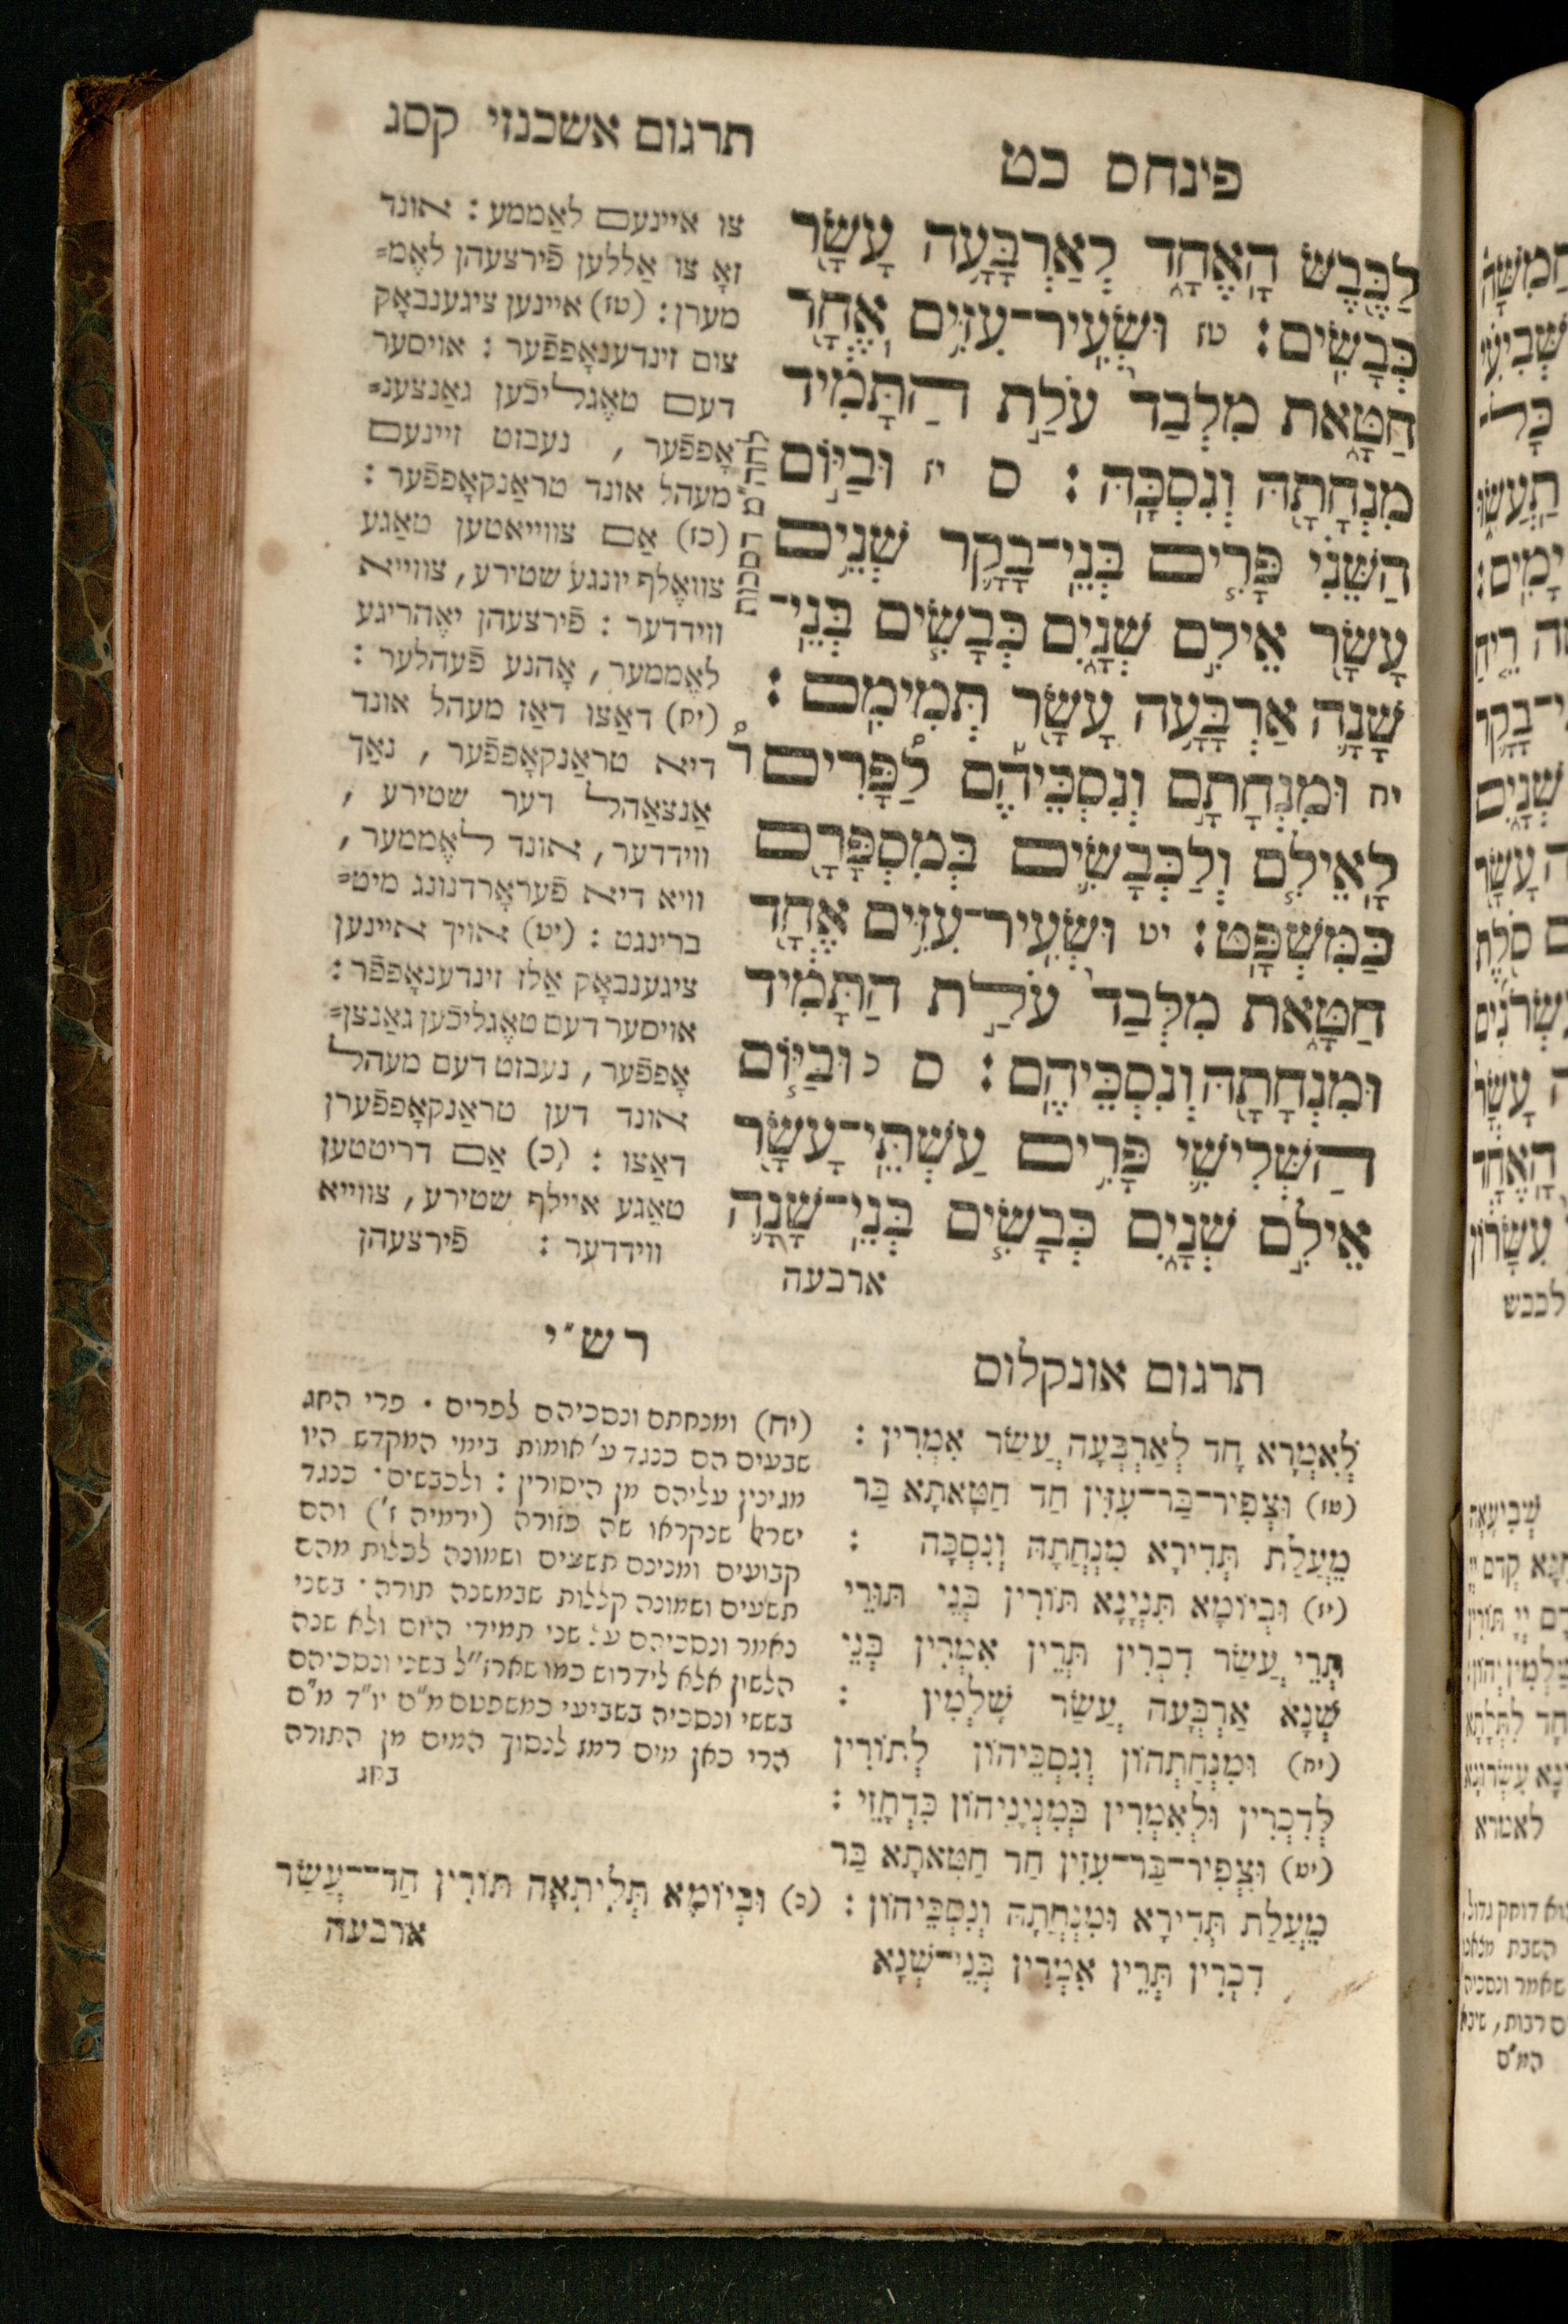 פינחס כט
תרגום אשכנזי קסג
לַכֶּ֖בֶשׂ הָאֶחָ֑ד לְאַרְבָּעָ֥ה עָשָׂ֖ר
כְּבָשִֽׂים׃ טז וּשְׂעִיר־עִזִּ֥ים אֶחָ֖ד
חַטָּ֑את מִלְּבַד֙ עֹלַ֣ת הַתָּמִ֔יד
מִנְחָתָ֖הּ וְנִסְכָּֽהּ׃ ס יז וּבַיּ֣וֹם
הַשֵּׁנִ֗י פָּרִ֧ים בְּנֵֽי־בָקָ֛ר שְׁנֵ֥ים
עָשָׂ֖ר אֵילִ֣ם שְׁנָ֑יִם כְּבָשִׂ֧ים בְּנֵֽי־
שָׁנָ֛ה אַרְבָּעָ֥ה עָשָׂ֖ר תְּמִימִֽם׃
יח וּמִנְחָתָ֣ם וְנִסְכֵּיהֶ֡ם לַ֠פָּרִים
לָאֵילִ֧ם וְלַכְּבָשִׂ֛ים בְּמִסְפָּרָ֖ם
כַּמִּשְׁפָּֽט׃ יט וּשְׂעִיר־עִזִּ֥ים אֶחָ֖ד
חַטָּ֑את מִלְּבַד֙ עֹלַ֣ת הַתָּמִ֔יד
וּמִנְחָתָ֖הּ וְנִסְכֵּיהֶֽם׃ ס כ וּבַיּ֧וֹם
הַשְּׁלִישִׁ֛י פָּרִ֥ים עַשְׁתֵּי־עָשָׂ֖ר
אֵילִ֣ם שְׁנָ֑יִם כְּבָשִׂ֧ים בְּנֵי־שָׁנָ֛ה
ארבעה
צו איינעם לאַממע : אונד
זאָ צו אַללען פֿירצעהן לאֶמ=
מערן : (טז) איינען ציגענבאָק
צום זינדענאָפפֿער : אויסער
דעם טאֶגליכֿען גאַנצענ=
אָפפֿער , נעבזט זיינעם
מעהל אונד טראַנקאָפפֿער :
(כז) אַם צווייאטען טאַגע
צוואֶלף יונגע שטירע, צווייא
ווידדער : פֿירצעהן יאֶהריגע
לאֶממער, אָהנע פֿעהלער :
(יח) דאַצו דאַז מעהל אונד
דיא טראַנקאָפפֿער , נאַך
אַנצאַהל דער שטירע ,
ווידדער, אונד לאֶממער ,
וויא דיא פֿעראָרדנונג מיט=
ברינגט : (יט) אויך איינען
ציגענבאָק אַלז זינדענאָפפֿר :
אויסער דעם טאֶגליכֿען גאַנצן=
אָפפֿער, נעבזט דעם מעהל
אונד דען טראַנקאָפפֿערן
דאַצו : (כ) אַם דריטטען
טאַגע איילף שטירע, צווייא
ווידדער : פֿירצעהן
תרגום אונקלוס
לְאִמְרָא חָד לְאַרְבְּעָה עֲשַׂר אִמְרִין :
(טז) וּצְפִיר־בַּר־עִזִּין חַד חַטָּאתָא בַּר
מֵעֲלַת תְּדִירָא מִנְחֲתַהּ וְנִסְכַּהּ :
(יז) וּבְיוֹמָא תִּנְיָנָא תּוֹרִין בְּנֵי תּוֹרֵי
תְּרֵי עֲשַׂר דִּכְרִין תְּרֵין אִמְּרִין בְּנֵי
שְׁנָא אַרְבְּעָה עֲשַׂר שָׁלְמִין :
(יח) וּמִנְחַתְהוֹן וְנִסְכֵּיהוֹן לְתוֹרִין
לְדִכְרִין וּלְאִמְּרִין בְּמִנְיָנֵיהוֹן כִּדְחָזֵי :
(יט) וּצְפִיר־בַּר־עִזִּין חַד חַטָּאתָא בַּר
מֵעֲלַת תְּדִירָא וּמִנְחֲתַהּ וְנִסְכֵּיהוֹן : (כ) וּבְיוֹמָא תְּלִיתָאָה תּוֹרִין חַד־עֲשַׂר
דִּכְרִין תְּרֵין אִמְּרִין בְּנֵי־שְׁנָא ארבעה
רש״י
(יח) ומנחתם ונסכיהם לפרים · פרי החג
שבעים הם כנגד ע׳ אומות בימי המקדש היו
מגינין עליהם מן היסורין : ולכבשים · כנגד
ישראל שנקראו שה פזורה (ירמיה ז׳) והם
קבועים ומנינם תשעים ושמונה לכלות מהם
תשעים ושמונה קללות שבמשנה תורה · בשני
נאמר ונסכיהם על שני תמידי היום ולא שנה
הלשון אלא לידרוש כמו שארז״ל בשני ונסכיהם
בששי ונסכיה בשביעי כמשפטם מ״ם יו״ד מ״ם
הרי כאן מים רמז לנסוך המים מן התורה
בחג